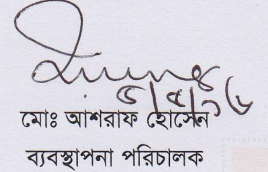 ৫/৫/১৬
মোঃ আশরাফ হোসেন
ব্যবস্থাপনা পরিচালক